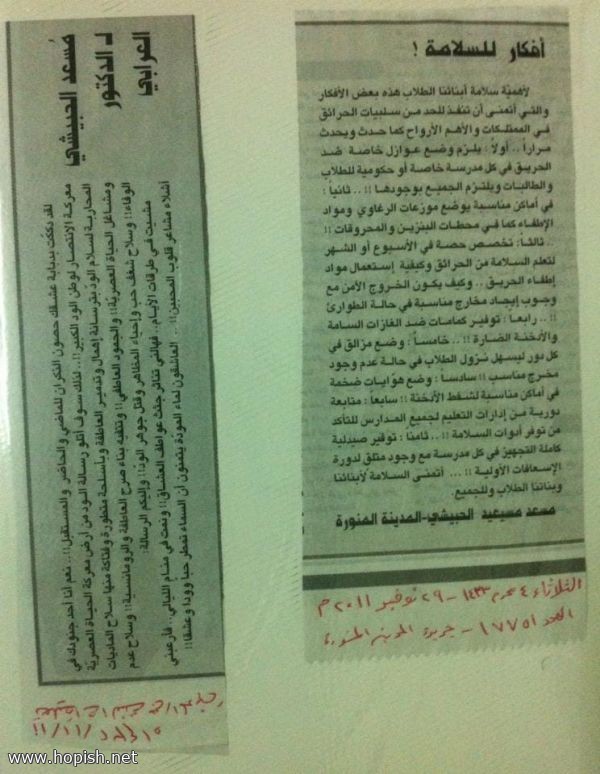 أفكار للسلامة !
لأهميّة سلامة أبنائنا الطلاب هذه بعض الأفكار
والتي أتمنى أن تنفذ للحد من سلبيات الحرائق
في الممتلكات والأهم الأرواح كما حدث ويحدث
مراراً .. أولاً : يلزم وضع عوازل خاصة ضد
الحريق في كل مدرسة خاصة أو حكومية للطلاب
والطالبات ويلتزم الجميع بوجودها !! .. ثانياً :
في أماكن مناسبة يوضع موزعات الرغاوي ومواد
الإطفاء كما في محطات البنزين والمحروقات !!
.. ثالثاً : تخصص حصة في الأسبوع أو الشهر
لتعلم السلامة من الحرائق وكيفية إستعمال مواد
إطفاء الحريق .. وكيف يكون الخروج الآمن مع
وجوب إيجاد مخارج مناسبة في حالة الطوارئ
!! .. رابعا : توفير كمامات ضد الغازات السامة
والأدخنة الضارة !! .. خامساً : وضع مزالق في
كل دور ليسهل نزول الطلاب في حالة عدم وجود
مخرج مناسب !! سادسا : وضع هوايات ضخمة
في أماكن مناسبة لشفط الأدخنة !! سابعا : متابعة
دورية من إدارات التعليم لجميع المدارس للتأكد
من توفر أدوات السلامة !! .. ثامنا : توفير صيدلية
كاملة التجهيز في كل مدرسة مع وجود متلق لدورة
الإسعافات الأولية !! .. أتمنى السلامة لأبنائنا
وبناتنا الطلاب وللجميع.
مسعد مسيعيد الحبيشي-المدينة المنورة
الثلاثاء ٤ محرم ١٤٣٣ - ٢٩ نوفمبر ٢٠١١م
العدد ١٧٧٥١ - جريدة المدينة المنورة
مُسعد الحبيشي
لـ الدكتور
العرابي
لقد دككت بدبابة عشقك حصون النكران للماضي والحاضر والمستقبل!!.. نعم أنا أحد جنودك في
معركة الانتصار لوطن الود الكبير!!.. لذلك سوف أتلو رسالة الود من أرض معركة الحياة العصرية
المحاربة لسلام الود بترسانة إهمال وتدمير العاطفة وبأسلحة متطورة وفتاكة منها سلاح الماديات
ومشاغل الحياة العصرية!! والجمود العاطفي!! وتتفيه بناء صرح العاطفة والرومانسية!! وسلاح عدم
الوفاء!! وسلاح شغف حب وإحياء المظاهر وقتل جوهر الود!! وإليكم الرسالة:
مشيت في طرقات الأيام.. فهالني تناثر جثث عواطف العشاق!! ونمت في منام الليالي.. فأرعبني
أشلاء مشاعر قلوب المحبين!! .. العاشقون لماء المودة يتمنون أن السماء تمطر حبا وودا وعشقا!!
www.hopish.net